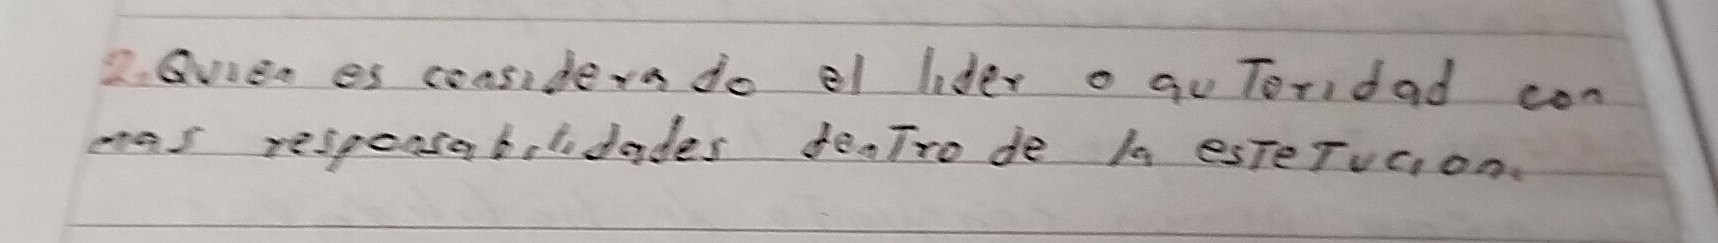 2. Quien es considerado el lider o auToridad con
mas responsabilidades denTro de la esTeTucion.